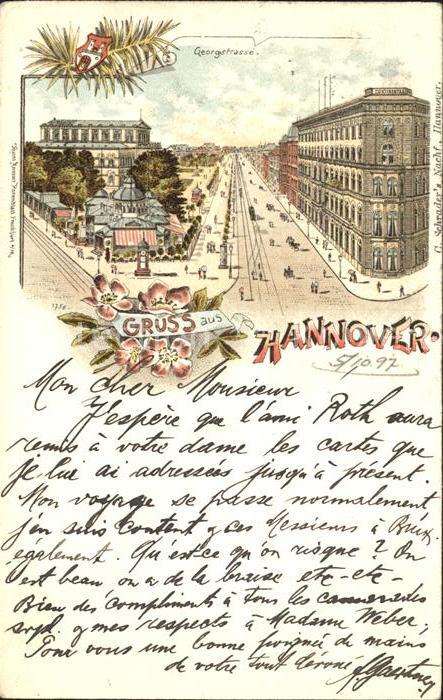 Georgstrasse.
CONTINENTAL
GRUSS aus
HANNOVER.
5/10.97
Mon cher Monsieur
J'espère que l'ami Roth aura
remis à votre dame les cartes que
je lui ai adressées jusqu'à présent.
Mon voyage se passe normalement
j'en suis content & ces Messieurs à
également. Qu'est ce qu'on risque? On
est beau on a de la braise etc-etc-
Bien des compliments à tous les camarades
& mes respects à Madame Weber,
Pour vous une bonne poignée de mains
de votre tout dévoué